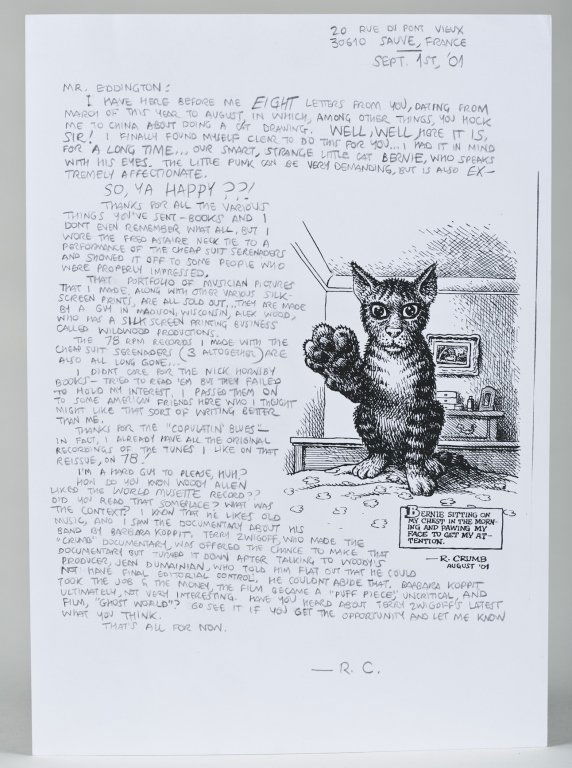 20 RUE DU PONT VIEUX
30610 SAUVE, FRANCE
SEPT. 1ST, '01
MR. EDDINGTON:
I HAVE HERE BEFORE ME EIGHT LETTERS FROM YOU, DATING FROM
MARCH OF THIS YEAR TO AUGUST, IN WHICH, AMONG OTHER THINGS, YOU HOCK
ME TO CHINA ABOUT DOING A CAT DRAWING. WELL, WELL, HERE IT IS,
SIR! I FINALLY FOUND MYSELF CLEAR TO DO THIS FOR YOU... I HAD IT IN MIND
FOR A LONG TIME... OUR SMART, STRANGE LITTLE CAT BERNIE, WHO SPEAKS
WITH HIS EYES. THE LITTLE PUNK CAN BE VERY DEMANDING, BUT IS ALSO EX-
TREMELY AFFECTIONATE.
SO, YA HAPPY??!
THANKS FOR ALL THE VARIOUS
THINGS YOU'VE SENT — BOOKS AND I
DON'T EVEN REMEMBER WHAT ALL, BUT I
WORE THE FRED ASTAIRE NECK TIE TO A
PERFORMANCE OF THE CHEAP SUIT SERENADERS
AND SHOWED IT OFF TO SOME PEOPLE WHO
WERE PROPERLY IMPRESSED.
THAT PORTFOLIO OF MUSICIAN PICTURES
THAT I MADE, ALONG WITH OTHER VARIOUS SILK-
SCREEN PRINTS, ARE ALL SOLD OUT... THEY ARE MADE
BY A GUY IN MADISON, WISCONSIN, ALEX WOOD,
WHO HAS A SILK SCREEN PRINTING BUSINESS
CALLED WILDWOOD PRODUCTIONS.
THE 78 RPM RECORDS I MADE WITH THE
CHEAP SUIT SERENADERS (3 ALTOGETHER) ARE
ALSO ALL LONG GONE...
I DIDN'T CARE FOR THE NICK HORNSBY
BOOKS — TRIED TO READ 'EM BUT THEY FAILED
TO HOLD MY INTEREST. I PASSED THEM ON
TO SOME AMERICAN FRIENDS HERE WHO I THOUGHT
MIGHT LIKE THAT SORT OF WRITING BETTER
THAN ME.
THANKS FOR THE "COPULATIN' BLUES —
IN FACT, I ALREADY HAVE ALL THE ORIGINAL
RECORDINGS OF THE TUNES I LIKE ON THAT
REISSUE, ON 78!
I'M A HARD GUY TO PLEASE, HUH?
HOW DO YOU KNOW WOODY ALLEN
LIKED THE WORLD MUSETTE RECORD??
DID YOU READ THAT SOMEPLACE? WHAT WAS
THE CONTEXT? I KNOW THAT HE LIKES OLD
MUSIC, AND I SAW THE DOCUMENTARY ABOUT HIS
BAND BY BARBARA KOPPIT, TERRY ZWIGOFF, WHO MADE THE
"CRUMB" DOCUMENTARY, WAS OFFERED THE CHANCE TO MAKE THAT
DOCUMENTARY BUT TURNED IT DOWN AFTER TALKING TO WOODY'S
PRODUCER, JEAN DUMAINIAN, WHO TOLD HIM FLAT OUT THAT HE COULD
NOT HAVE FINAL EDITORIAL CONTROL. HE COULDN'T ABIDE THAT. BARBARA KOPPIT
TOOK THE JOB & THE MONEY, THE FILM BECAME A "PUFF PIECE," UNCRITICAL, AND
ULTIMATELY, NOT VERY INTERESTING. HAVE YOU HEARD ABOUT TERRY ZWIGOFF'S LATEST
FILM, "GHOST WORLD"? GO SEE IT IF YOU GET THE OPPORTUNITY AND LET ME KNOW
WHAT YOU THINK.
THAT'S ALL FOR NOW.
— R. C.
BERNIE SITTING ON
MY CHEST IN THE MORN-
ING AND PAWING MY
FACE TO GET MY AT-
TENTION.
— R. CRUMB
AUGUST '01